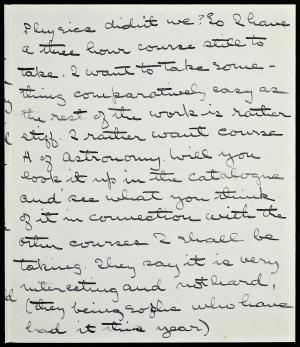 Physics didn't we? So I have
a three hour course still to
take. I want to take some-
thing comparatively easy as
the rest of the work is rather
stiff. I rather want course
A of Astronomy. Will you
look it up in the catalogue
and see what you think
of it in connection with the
other courses I shall be
taking. They say it is very
interesting and not hard,
(they being sophs who have
had it this year)